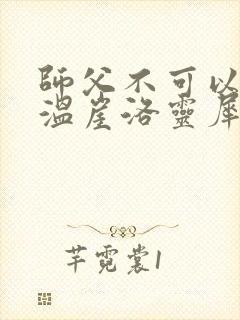 師父不可以
溫崖洛靈犀
芊霓裳1